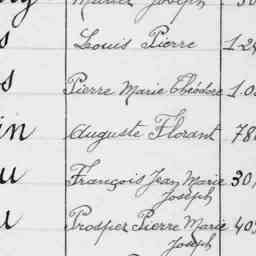 Joseph
s Louis Pierre 1.2
s Pierre Marie Théodore 1.0
in Auguste Florant 78
u François Jean Marie 30
Joseph
u Prosper Pierre Marie 40
Joseph